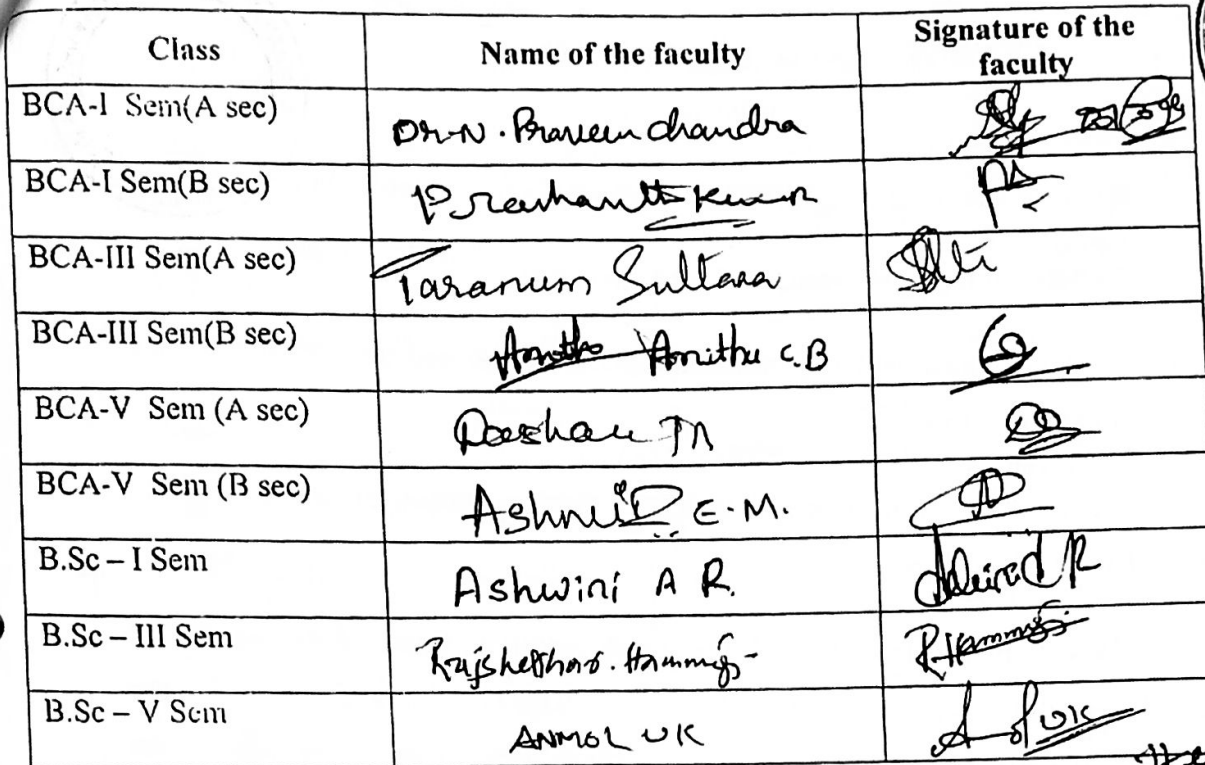 Class Name of the faculty Signature of the
faculty
BCA-I Sem(A sec) Dr. N. Praveen chandra
BCA-I Sem(B sec) Prashanth Kumar
BCA-III Sem(A sec) Taranum Sultana
BCA-III Sem(B sec) Amitha C.B
BCA-V Sem (A sec)
BCA-V Sem (B sec) E.M.
B.Sc – I Sem Ashwini A R.
B.Sc – III Sem R Hammigi
B.Sc – V Sem ANMOL UK UK